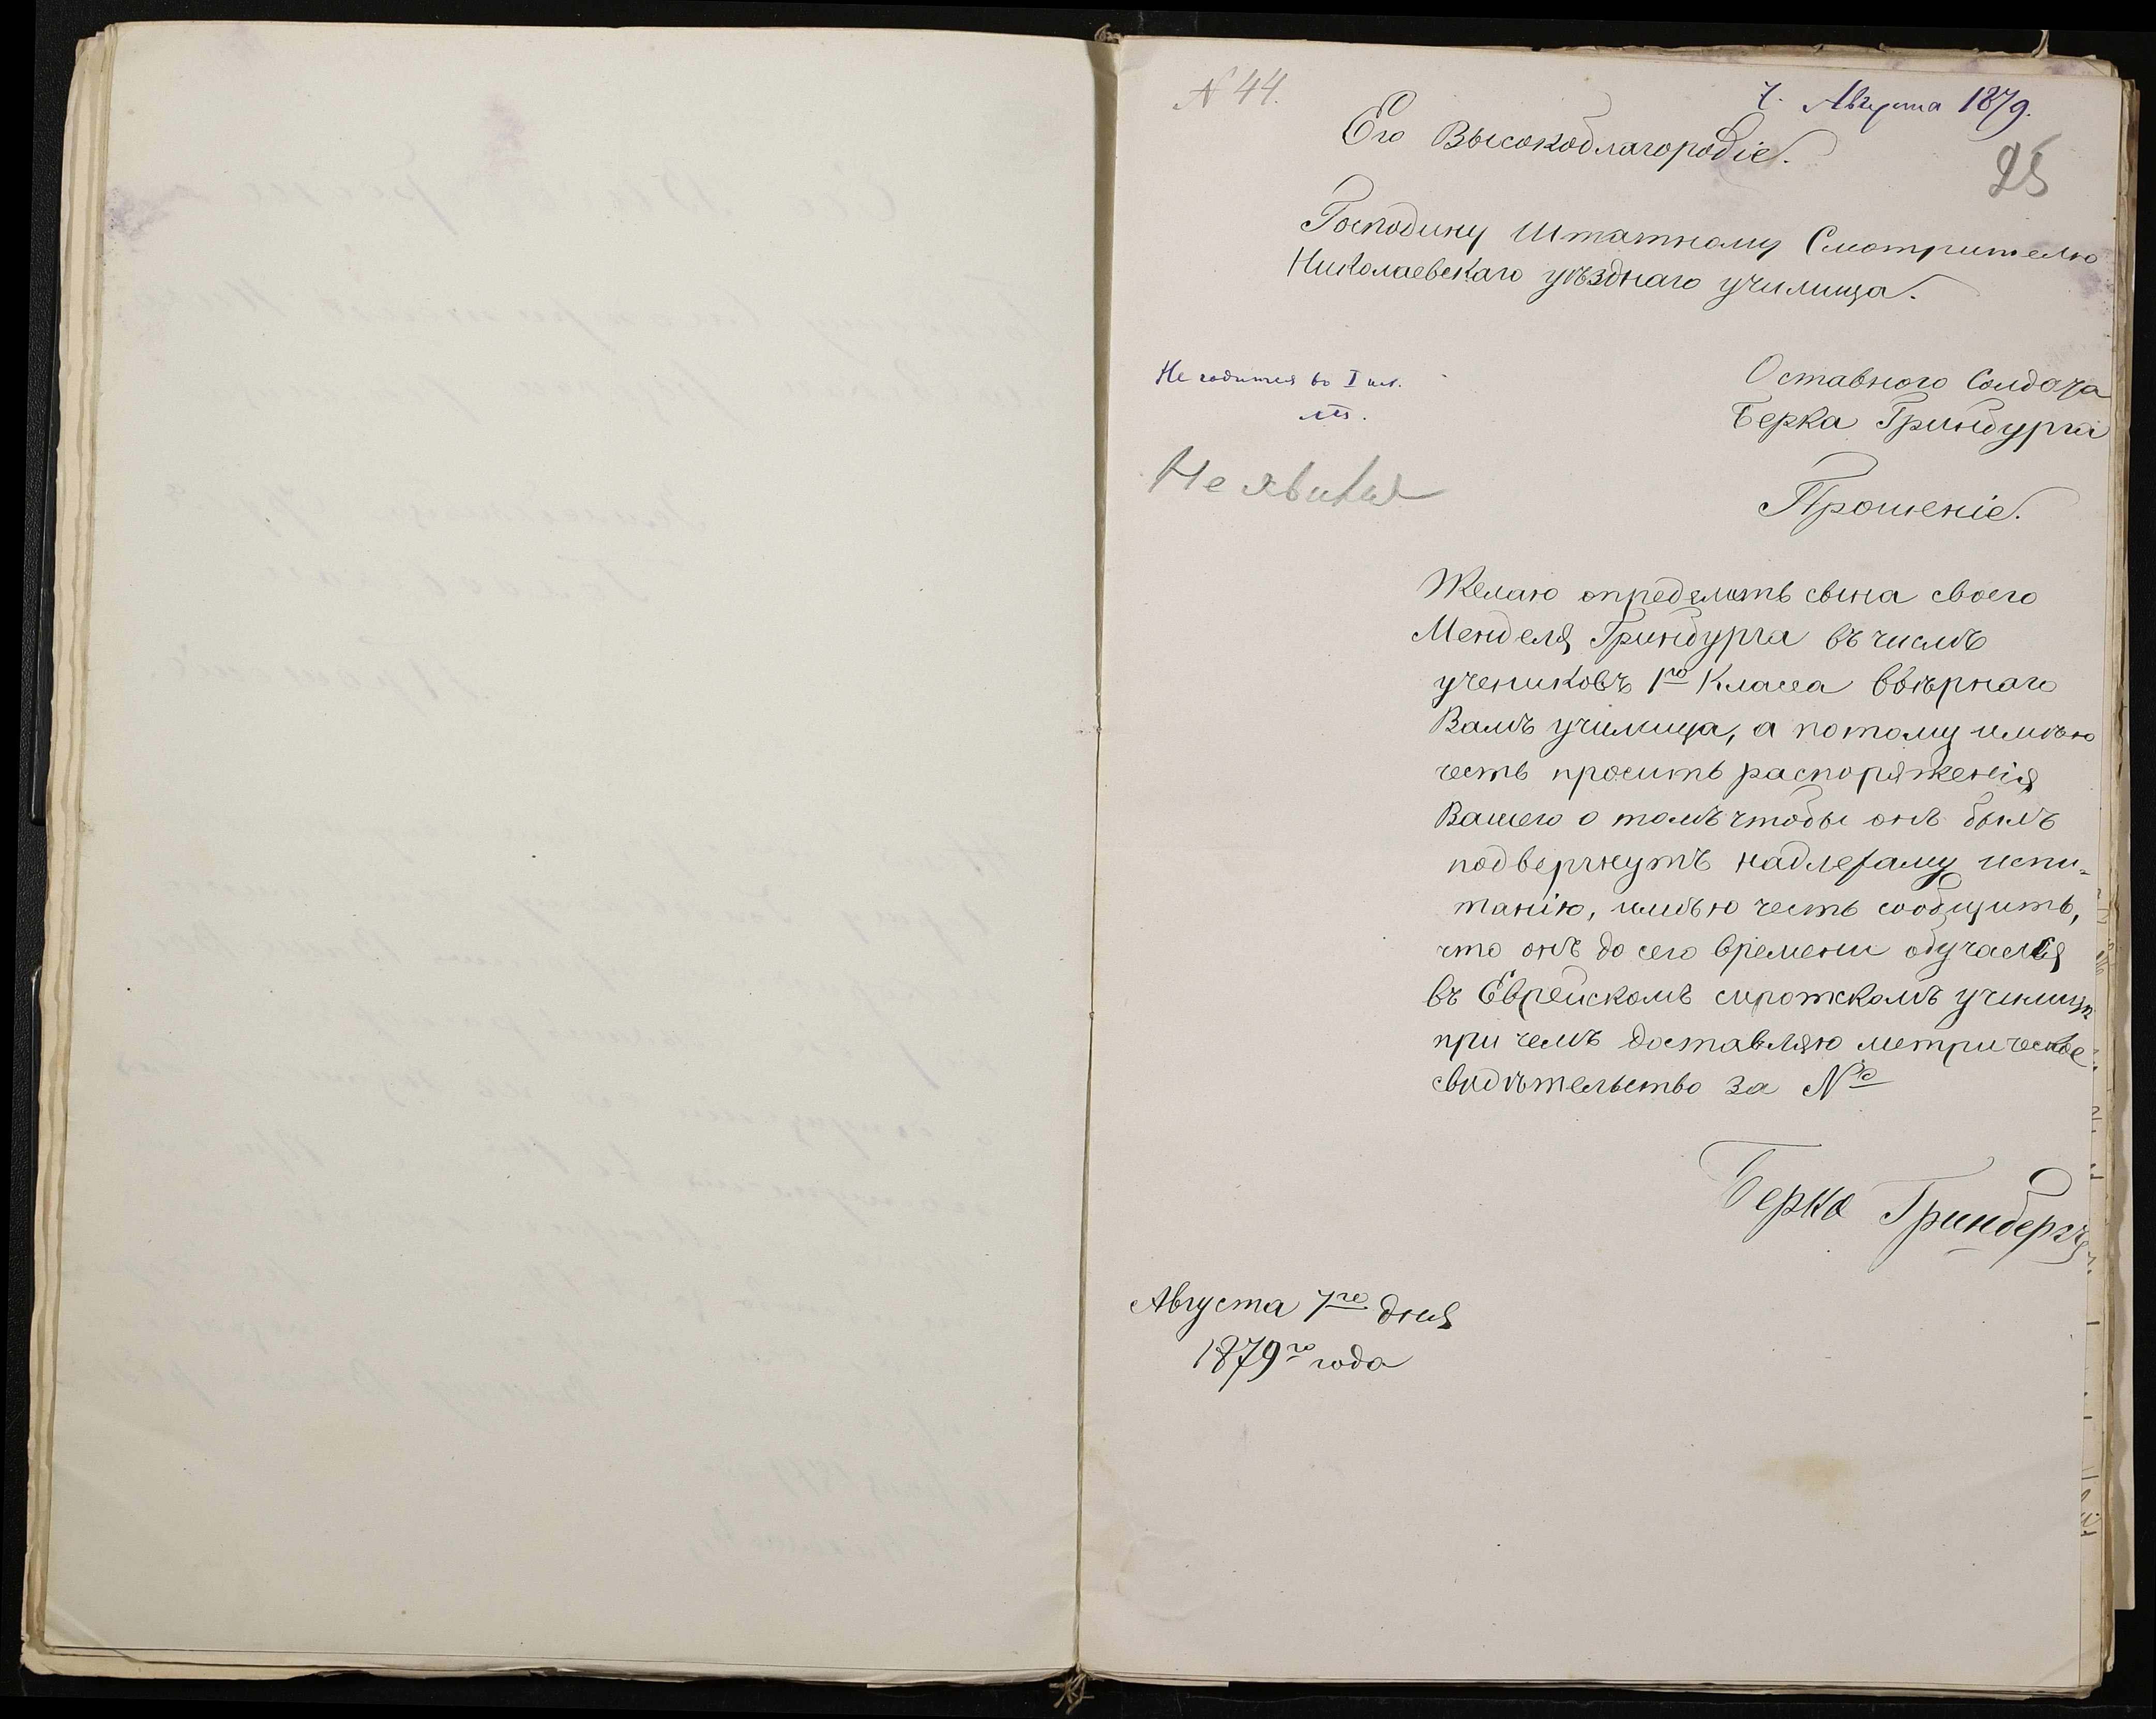 N 44.
7. Августа 1879.
25
Его Высокоблагородіе.
Господину Штатному Смотрителю
Николаевскаго уѣзднаго училища.
Не годится во I кл.
Оставного Солдата
Берка Гринбурга
Не явился
Прошеніе.
Желаю опредѣлить сына своего
Менделя Гринбурга въ числѣ
учениковъ 1го Класса ввѣрнаго
Вамъ училища, а потому имѣю
честь просить распоряженія
Вашего о томъ чтобы онъ былъ
подвергнутъ испы-
танію, имѣю честь сообщить,
что онъ до сего времени обучался
въ Еврейскомъ сиротскомъ училищѣ
при чемъ доставляю метрическое
свидѣтельство за №
Берка Гринбергъ
Августа 7го дня
1879го года